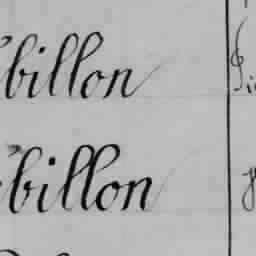 billon
billon